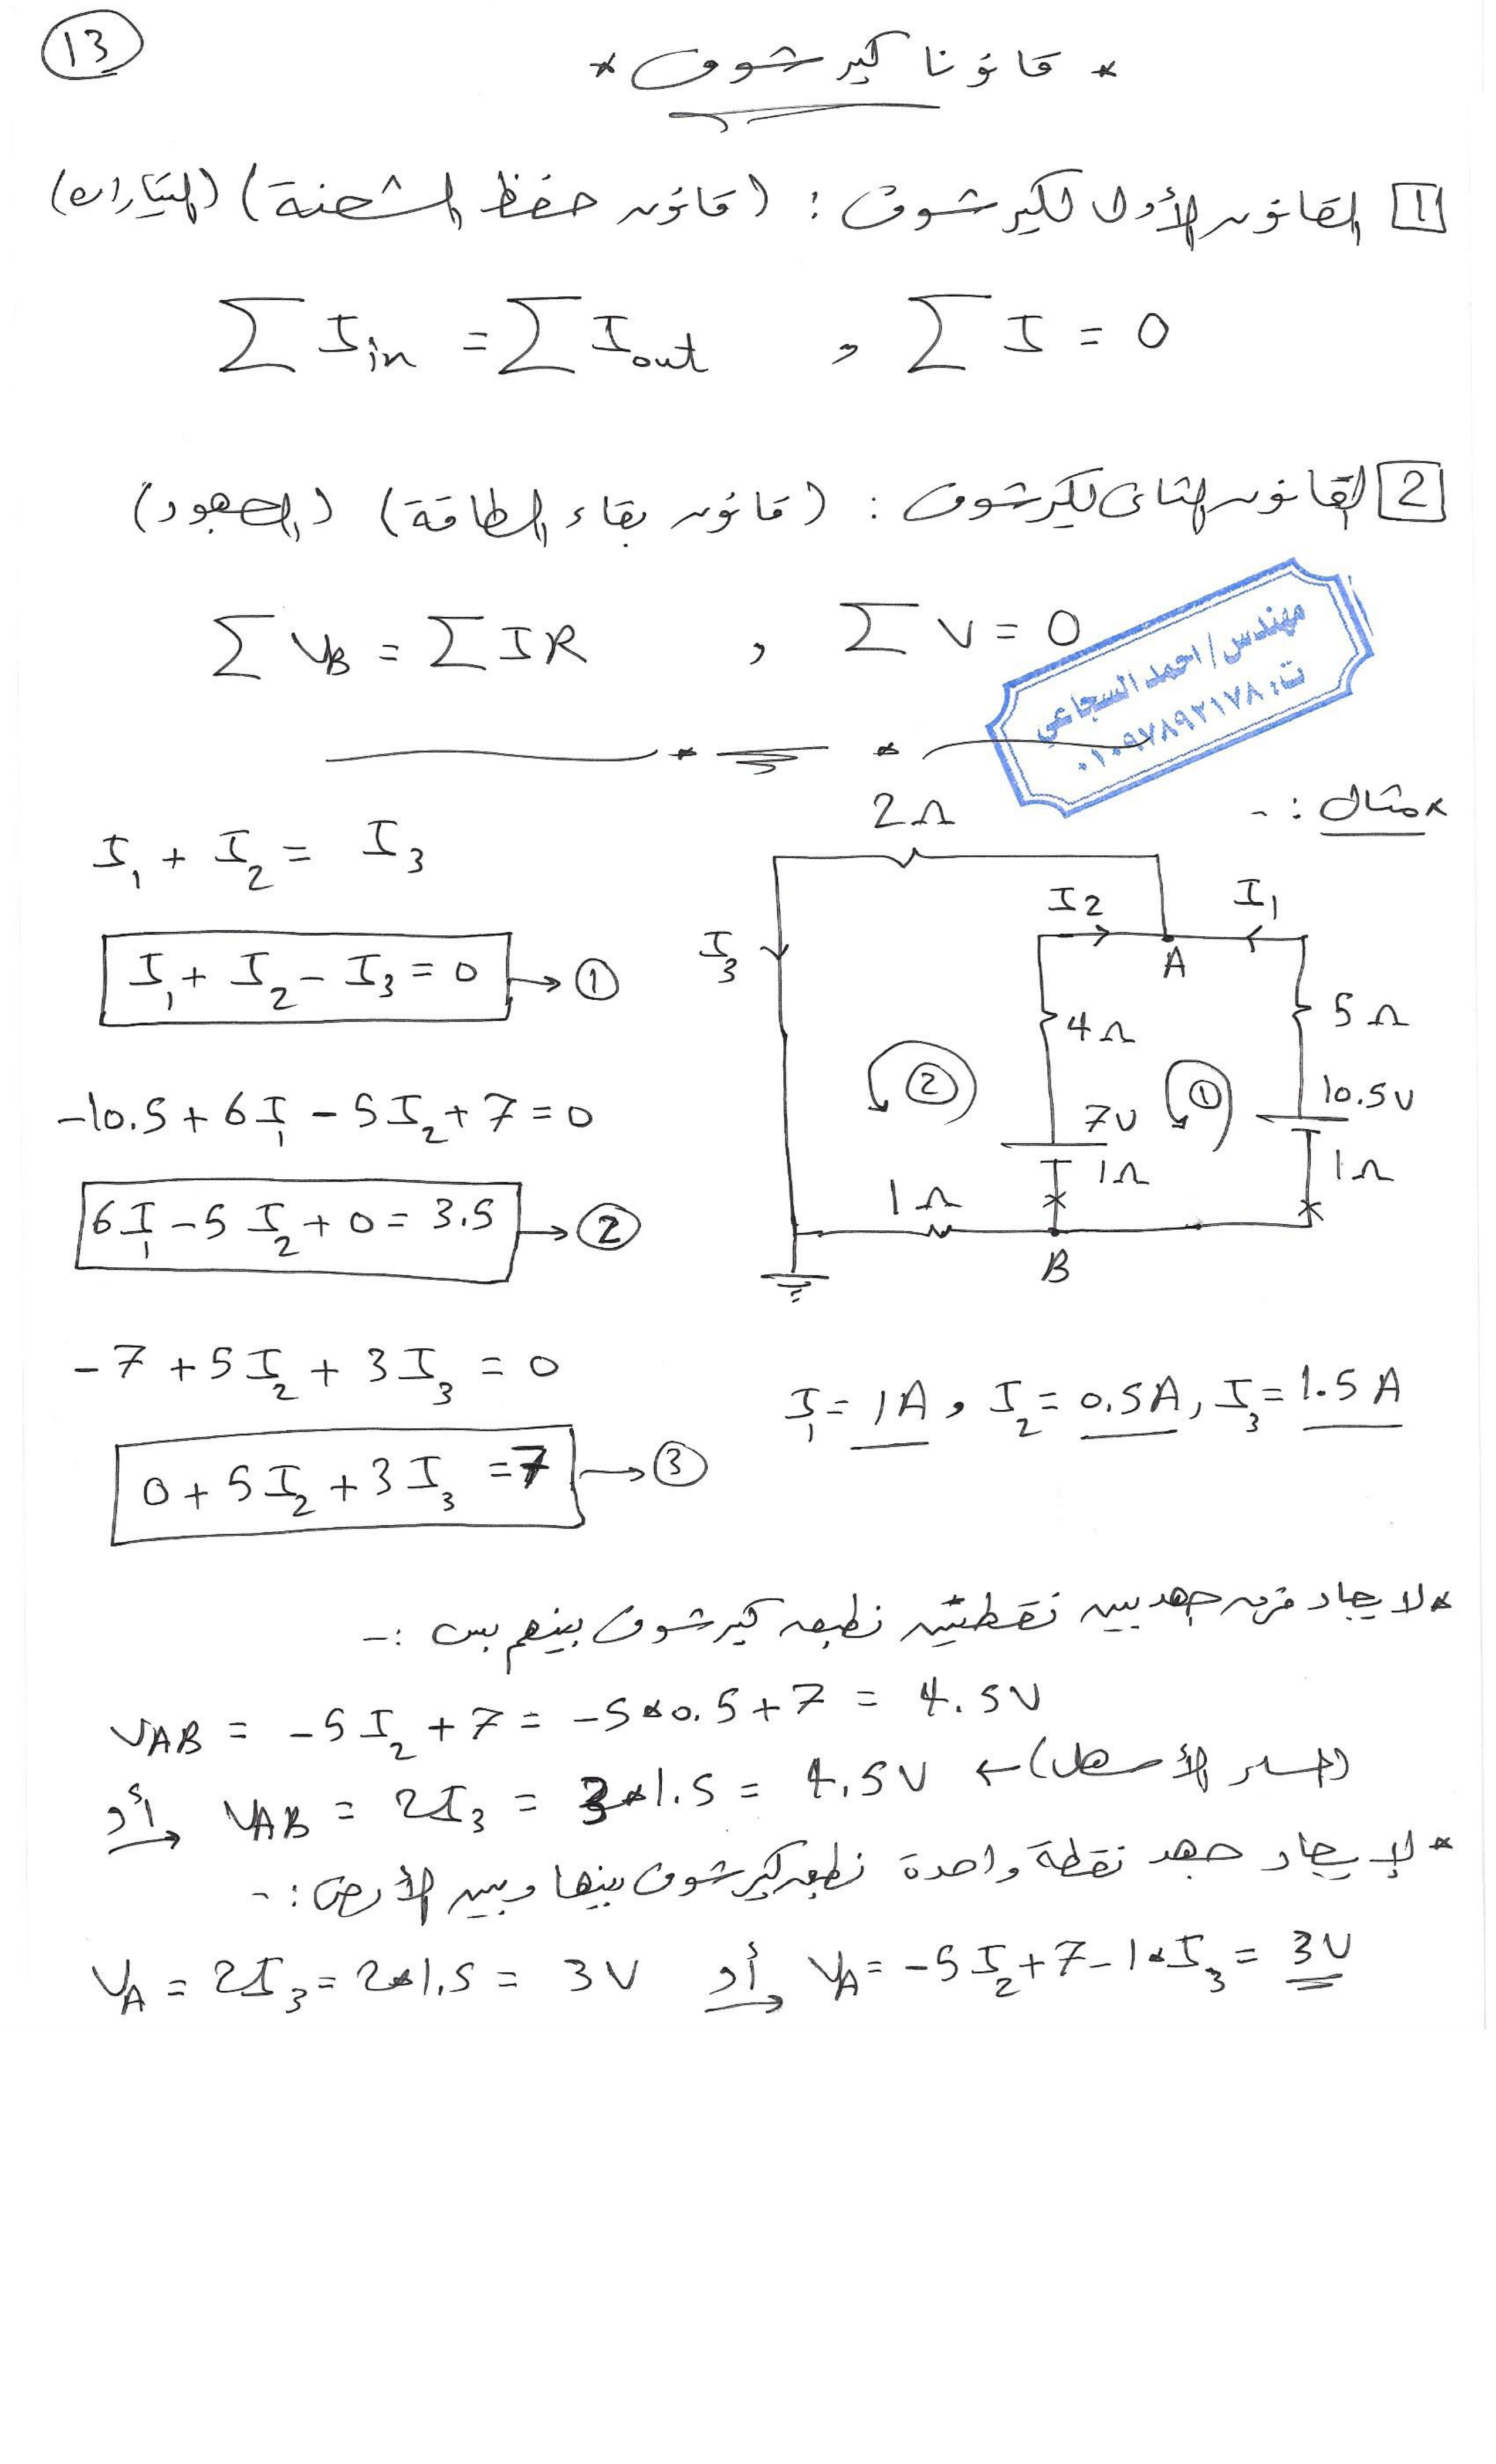 13
* قانونا كيرشوف *
1 القانون الأول لكيرشوف : (قانون حفظ الشحنة) (التيارات)
∑ I_in = ∑ I_out , ∑ I = 0
2 القانون الثانى لكيرشوف : (قانون بقاء الطاقة) (الجهود)
∑ V_B = ∑ IR , ∑ V = 0
مهندس / احمد السجاعي
ت: ٠١٠٩٧٨٩٢١٧٨
* مثال :-
2Ω
I₂ I₁
A
I₃
4Ω 5Ω
② ①
7V 10.5V
1Ω 1Ω
1Ω
B
I₁ + I₂ = I₃
I₁ + I₂ - I₃ = 0 → ①
-10.5 + 6I₁ - 5I₂ + 7 = 0
6I₁ - 5I₂ + 0 = 3.5 → ②
-7 + 5I₂ + 3I₃ = 0
0 + 5I₂ + 3I₃ = 7 → ③
I₁ = 1A , I₂ = 0.5A , I₃ = 1.5A
* لايجاد فرق جهد بين نقطتين نطبق كيرشوف بينهم بس :-
V_AB = -5I₂ + 7 = -5*0.5+7 = 4.5V
أو V_AB = 2I₃ = 3*1.5 = 4.5V ← (المسار الأسهل)
* لإيجاد جهد نقطة واحدة نطبق كيرشوف بينها وبين الأرض :-
V_A = 2I₃ = 2*1.5 = 3V أو V_A = -5I₂+7-1*I₃ = 3V